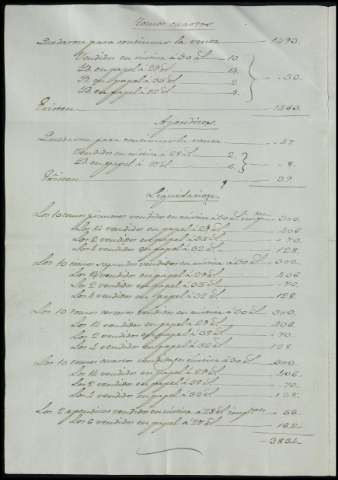 Tomos cuartos
Quedaron para continuar la venta 1390.
Vendidos en rústica a 30 rl. 10.
Id. en papel a 29 rl.
Id. en papel a 35 rl. 2.
Id. en papel a 32 rl.
30.
Existen 1360.
Apendices.
Quedaron para continuar la venta
Vendidos en rústica a 28 rl. 2.
Id. en papel a 27 rl. 6.
8.
Existen
Liquidacion
Los 10 tomos primeros vendidos en rústica a 30 rl. 300.
Los 14 vendidos en papel a 29 rl. 406.
Los 2 vendidos en papel a 35 rl. 70.
Los 4 vendidos en papel a 32 rl. 128.
Los 10 tomos segundos vendidos en rústica a 30 rl. 300.
Los 14 vendidos en papel a 29 rl. 406.
Los 2 vendidos en papel a 35 rl. 70.
Los 4 vendidos en papel a 32 rl. 128.
Los 10 tomos terceros vendidos en rústica a 30 rl. 300.
Los 14 vendidos en papel a 29 rl. 406.
Los 2 vendidos en papel a 35 rl. 70.
Los 4 vendidos en papel a 32 rl. 128.
Los 10 tomos cuartos en rústica a 30 rl. 300.
Los 14 vendidos en papel a 29 rl. 406.
Los 2 vendidos en papel a 35 rl. 70.
Los 4 vendidos en papel a 32 rl. 128.
Los 2 apendices vendidos en rústica a 28 rl. 56.
Los 6 vendidos en papel a 27 rl. 162.
3834.